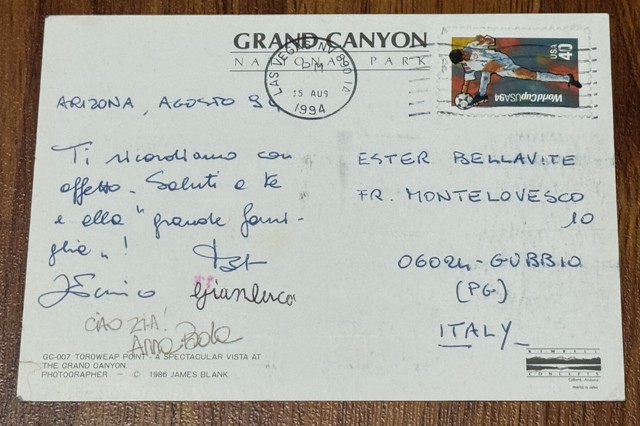 GRAND CANYON
NATIONAL PARK
LAS VEGAS NV 890
PM
15 AUG
1994
USA 40
WorldCupUSA94
ARIZONA, AGOSTO 94
Ti ricordiamo con
affetto. Saluti a te
e alla "grande fami-
glia"!
Gianluca
CIAO ZIA!
Anna Paola
ESTER BELLAVITE
FR. MONTELOVESCO
10
06024-GUBBIO
(PG)
ITALY
GC-007 TOROWEAP POINT - A SPECTACULAR VISTA AT
THE GRAND CANYON
PHOTOGRAPHER - © 1986 JAMES BLANK